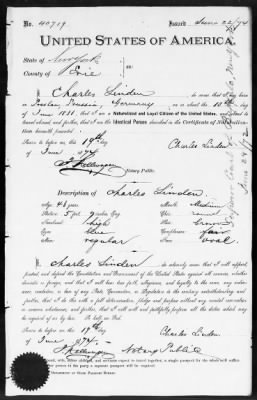 No. 40719 Issued June 22/74
UNITED STATES OF AMERICA.
State of New York
County of Erie ss:
I, Charles Linden do swear that I was born
in Breslau Prussia, Germany on or about the 10th day
of June 1826, that I am a Naturalized and Loyal Citizen of the United States,
and that I am the Identical Person described in the Certificate of Naturalization
herewith presented.
Sworn to before me, this 19th day
of June 1874 Charles Linden
Notary Public.
Description of Charles Linden
Age: 48 years Mouth: Medium
Stature: 5 feet inches, Eng. Chin: round
Forehead: high Hair: brown
Eyes: blue Complexion: fair
Nose: regular Face: oval
I, Charles Linden do solemnly swear that I will support,
protect, and defend the Constitution and Government of the United States against all enemies, whether
domestic or foreign; and that I will bear true faith, allegiance, and loyalty to the same, any ordinance,
resolution, or law of any State, Convention, or Legislature to the contrary notwithstanding; and
further, that I do this with a full determination, pledge, and purpose, without any mental reservation
or evasion whatsoever; and further, that I will well and faithfully perform all the duties which
may be required of me by law. So help me God.
Sworn to before me, this 19th day
of June 1874. Charles Linden
Notary Public
June 24/72